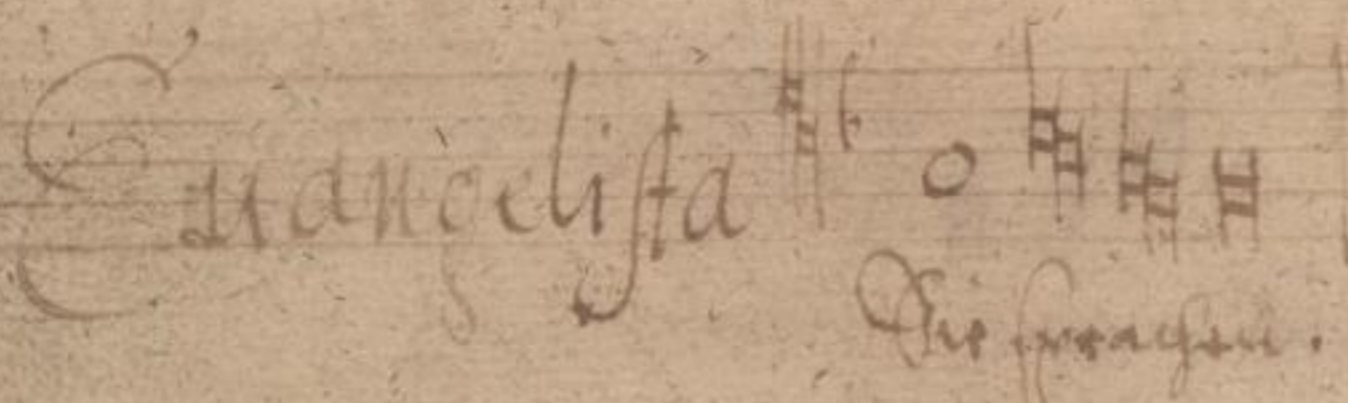 Euangelista
Sie sprachen.